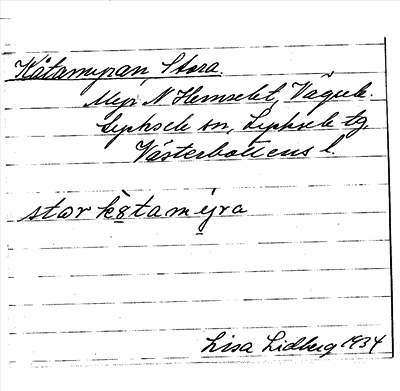 Kåtamyran, Stora.
Myr N Hemseket, Vägsele.
Lycksele sn, Lycksele tg,
Västerbottens l.
stor kåtamyra
Lisa Lidberg 1934